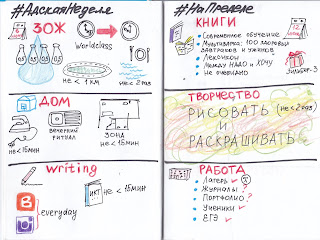 #АдскаяНеделя
ЗОЖ
6
0,5 0,5 0,5 0,5
Worldclass
не < 1 км
не < 2 раз
ДОМ
вечерний
ритуал
зона
не < 15 мин
не < 15мин
writing
ИКТ
не < 15мин
B
everyday
#НаПределе
КНИГИ
Современное обучение
Мультиварка: 100 здоровых
завтраков и ужинов
Лекомцы
Между НАДО и ХОЧУ
Не очевидно
12
ТВОРЧЕСТВО
РИСОВАТЬ (не < 2 раз)
И
РАСКРАШИВАТЬ
РАБОТА
Лагерь
Журналы ?
Портфолио ?
Ученики
ЕГЭ